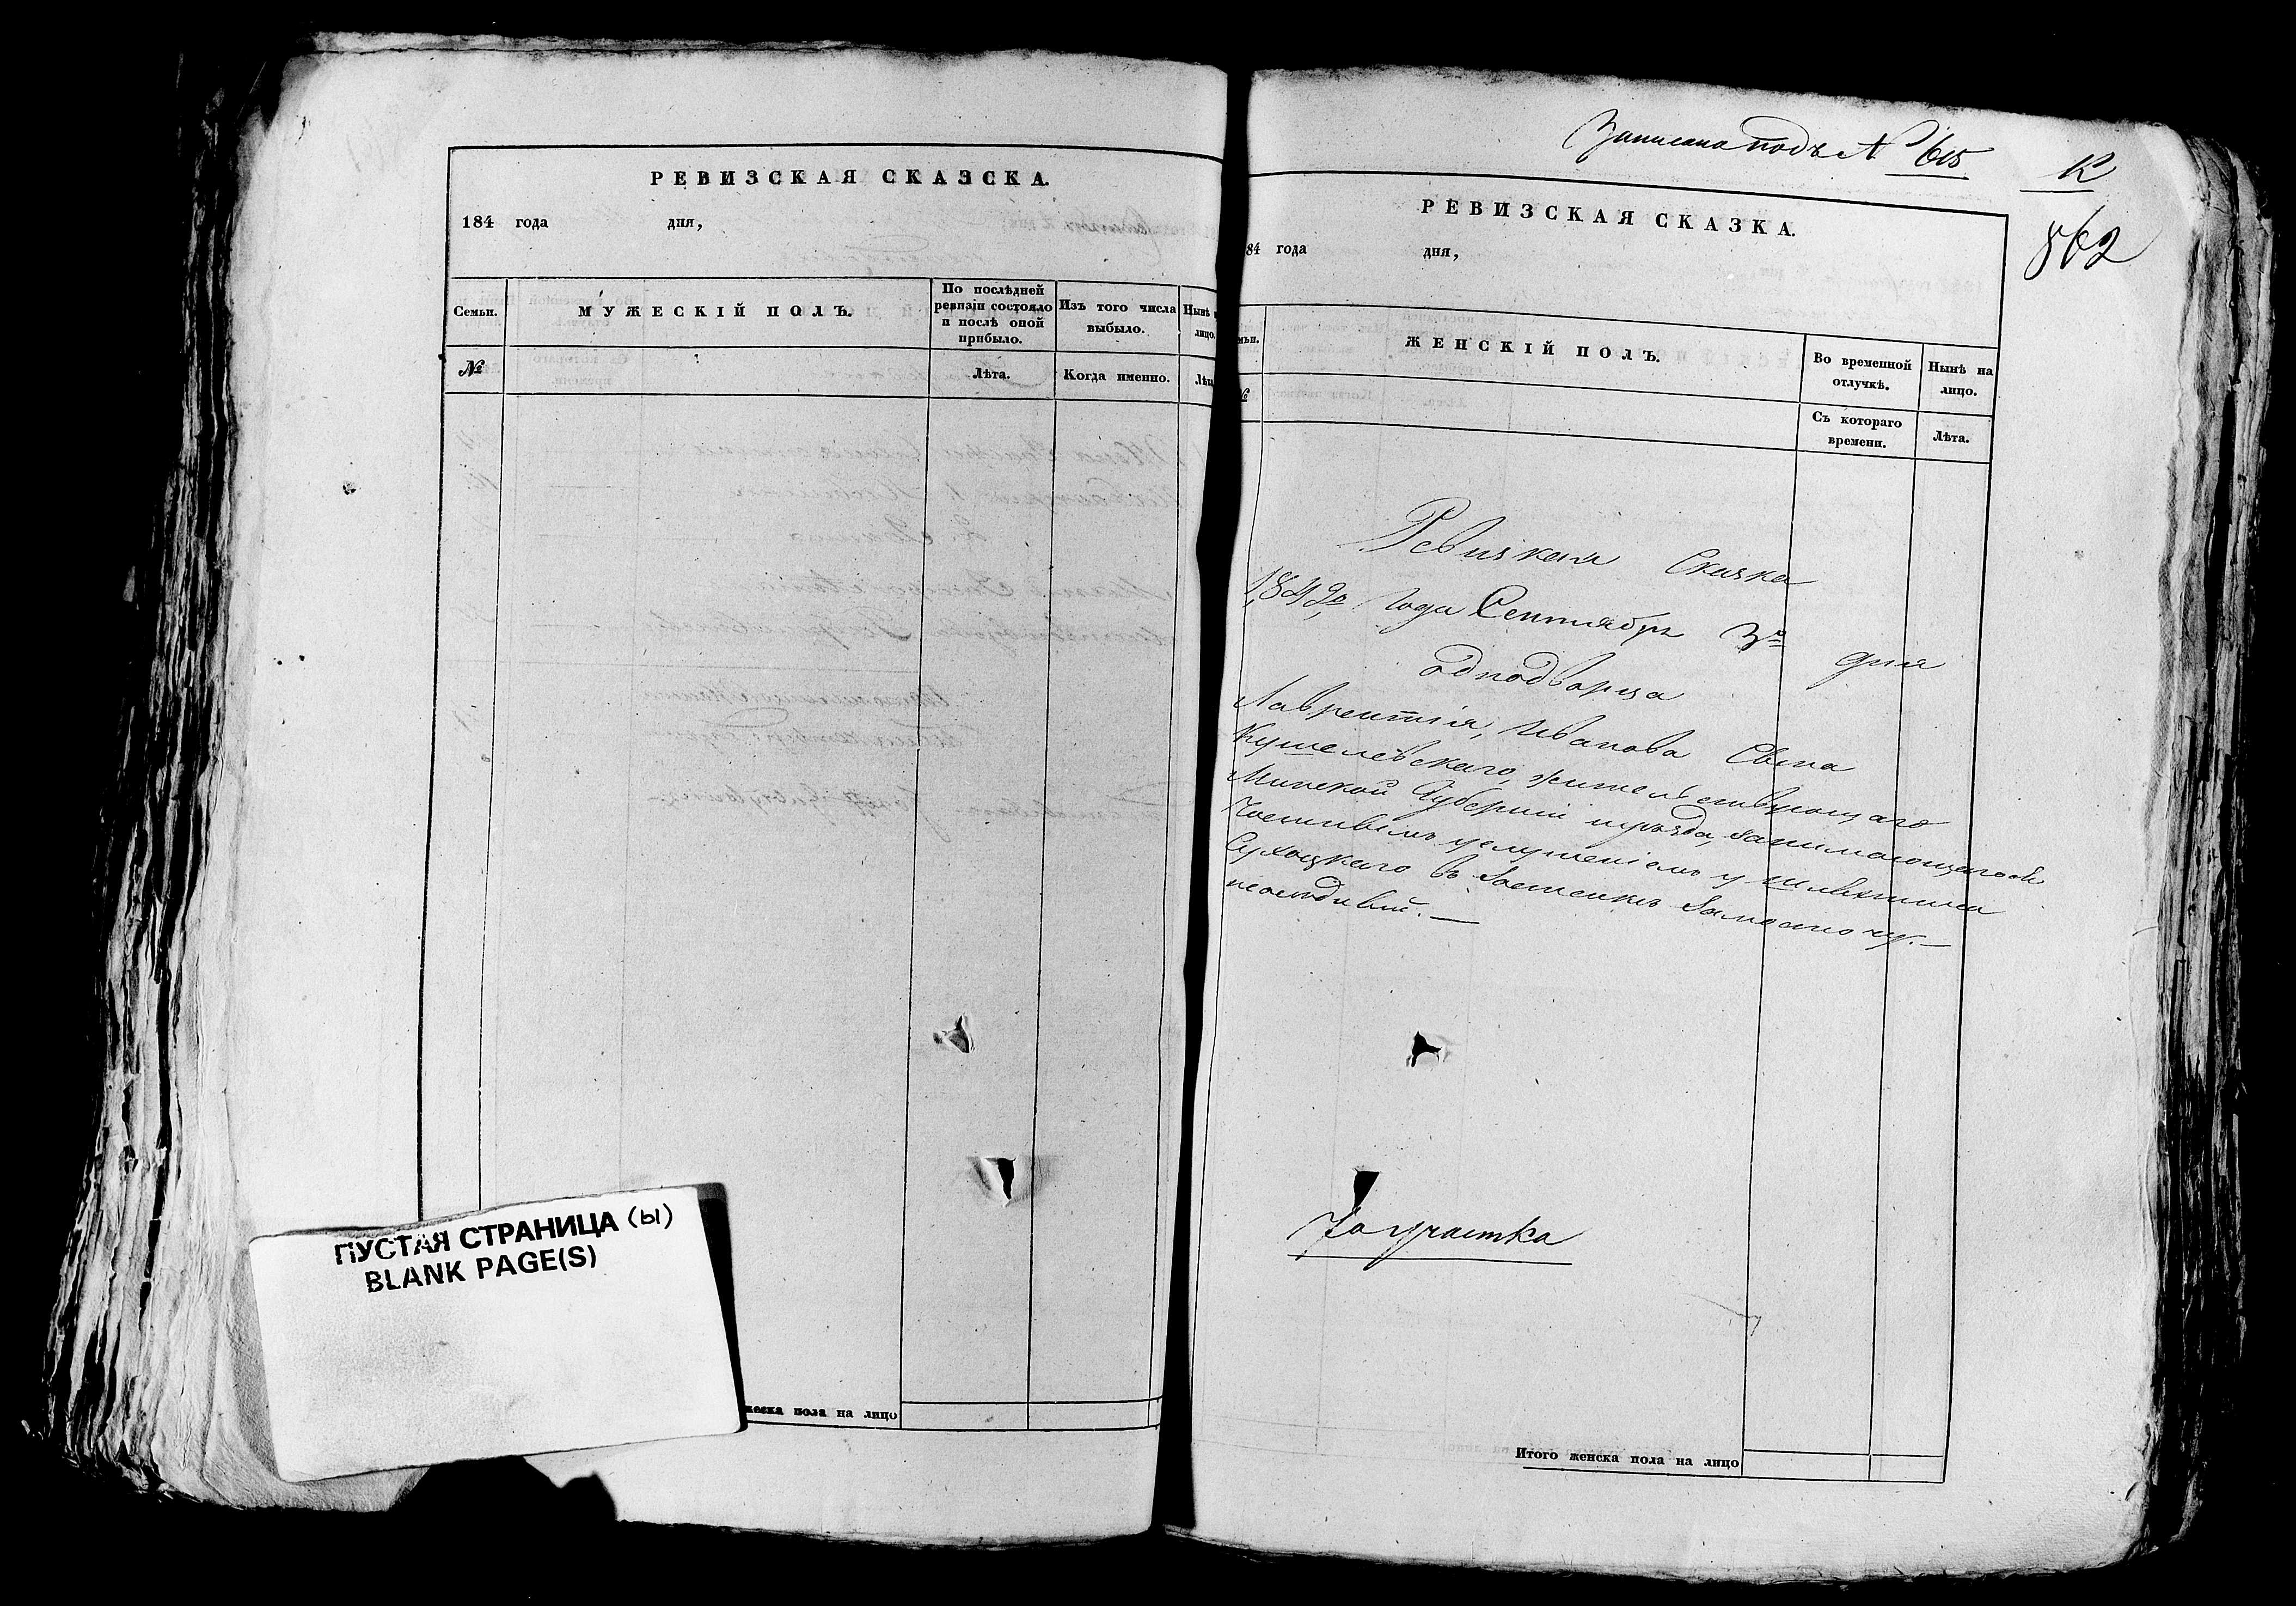 РЕВИЗСКАЯ СКАЗСКА.
184 года дня,
Семьи.
МУЖЕСКІЙ ПОЛЪ.
По послѣдней ревизіи состояло и послѣ оной прибыло.
Изъ того числа выбыло.
Нынѣ лицо.
№
Лѣта.
Когда именно.
Лѣта
ПУСТАЯ СТРАНИЦА (Ы)
BLANK PAGE(S)
жеска пола на лицо
Записано подъ № 615
К
862
РЕВИЗСКАЯ СКАЗКА.
84 года дня,
мьи.
ЖЕНСКІЙ ПОЛЪ.
Во временной отлучкѣ.
Нынѣ на лицо.
№
Съ котораго времени.
Лѣта.
Ревизкая Сказка
1842го года Сентября 3го дня
однодворца
Лаврентія, Иванова Сына
Кушелевскаго, жительствующаго
Минской Губерніи и уѣзда, занимающагося
услуженіемъ у шляхтича
Сухоцкаго в застенкѣ
неоседлый.—
1го участка
Итого женска пола на лицо